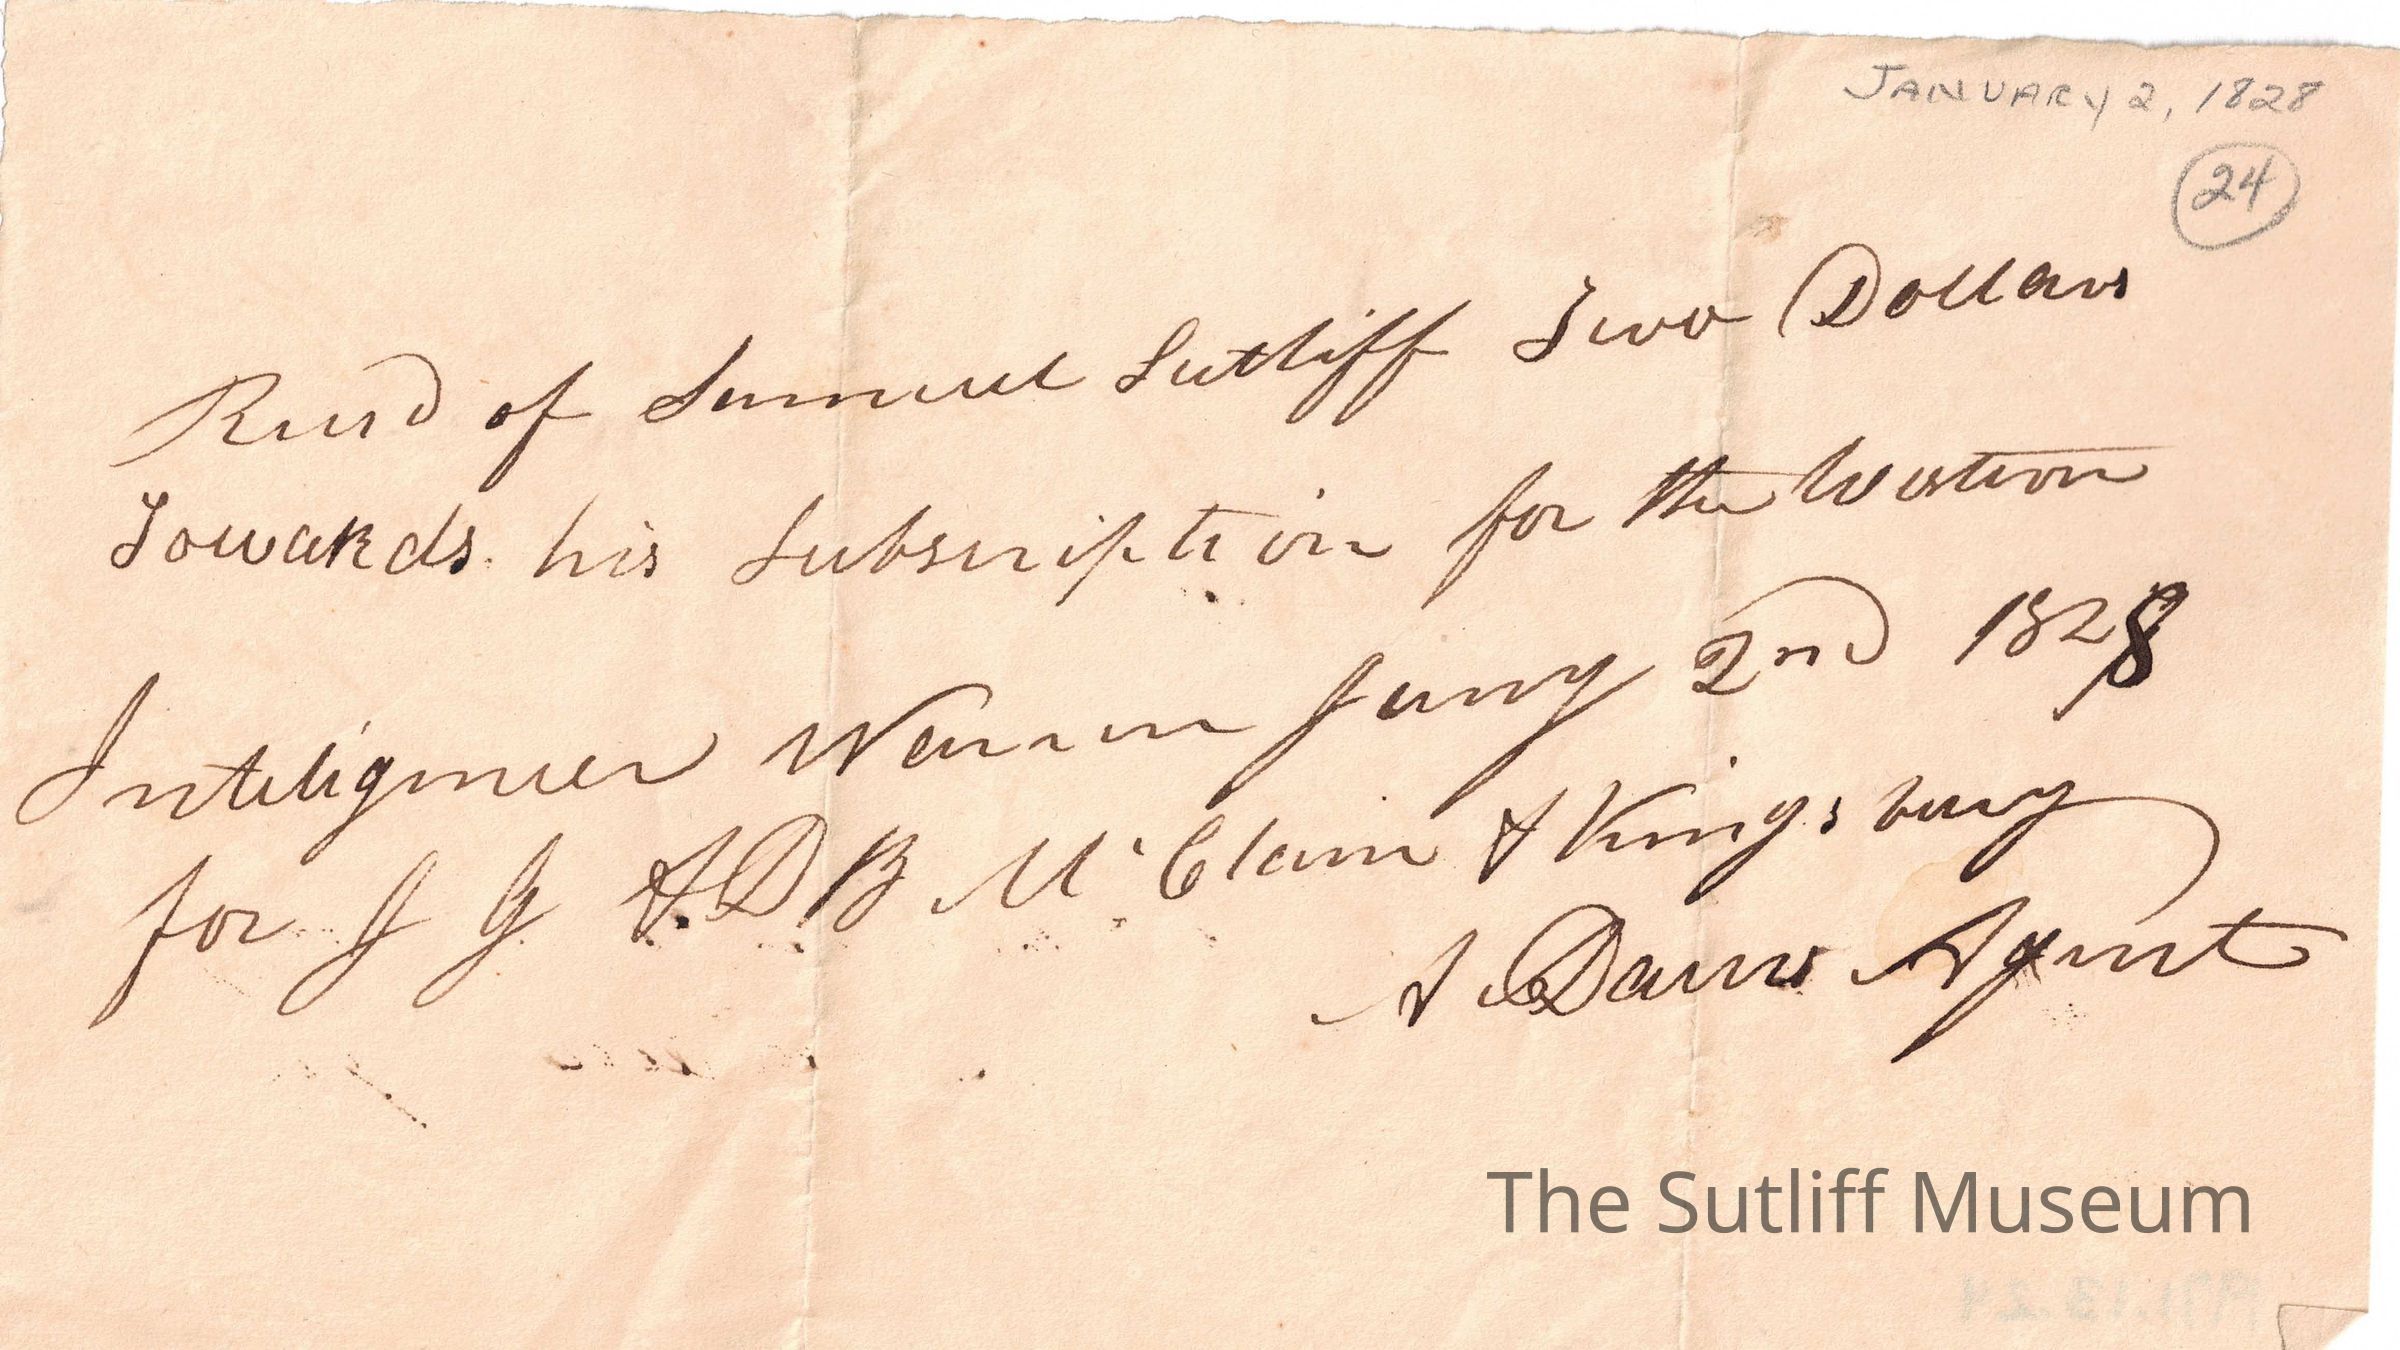 JANUARY 2, 1828
24
Recd of Samuel Sutliff Two Dollars
Towards his Subscription for the Western
Inteligencer Warren Jany 2nd 1828
for J G & D B McClain & Kingsbury
A Davis Agent
The Sutliff Museum
1971.13.24